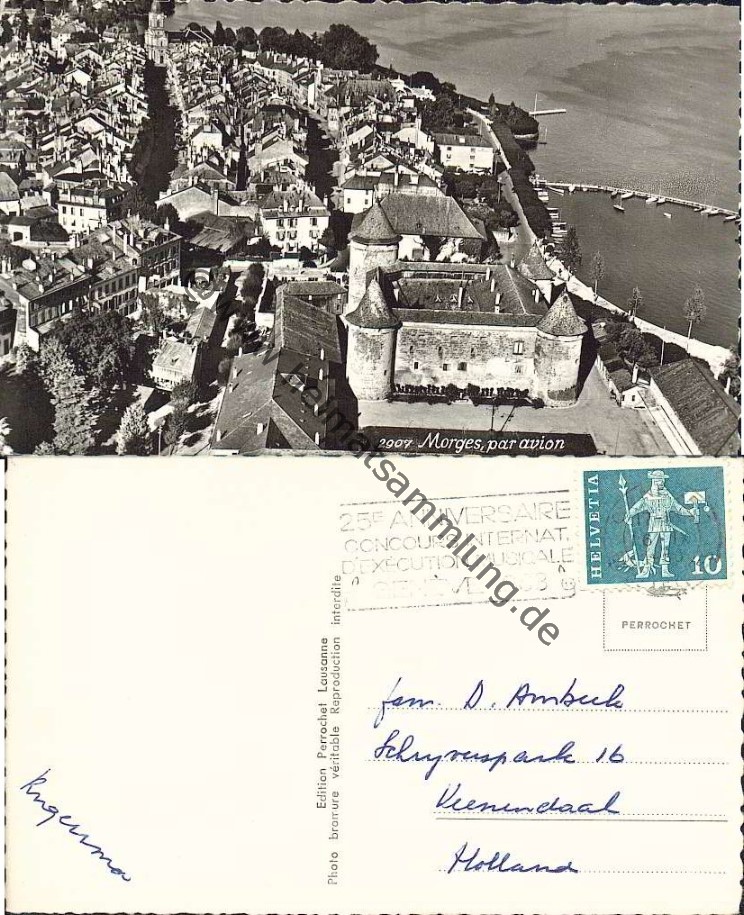 2907 Morges, par avion
www.heimatsammlung.de
25E ANNIVERSAIRE
CONCOURS INTERNAT.
D'EXÉCUTION MUSICALE
GENÈVE
HELVETIA
10
PERROCHET
Edition Perrochet Lausanne
Photo bromure véritable Reproduction interdite
fam. D. Ambeek
Schrÿverspark 16
Veenendaal
Holland